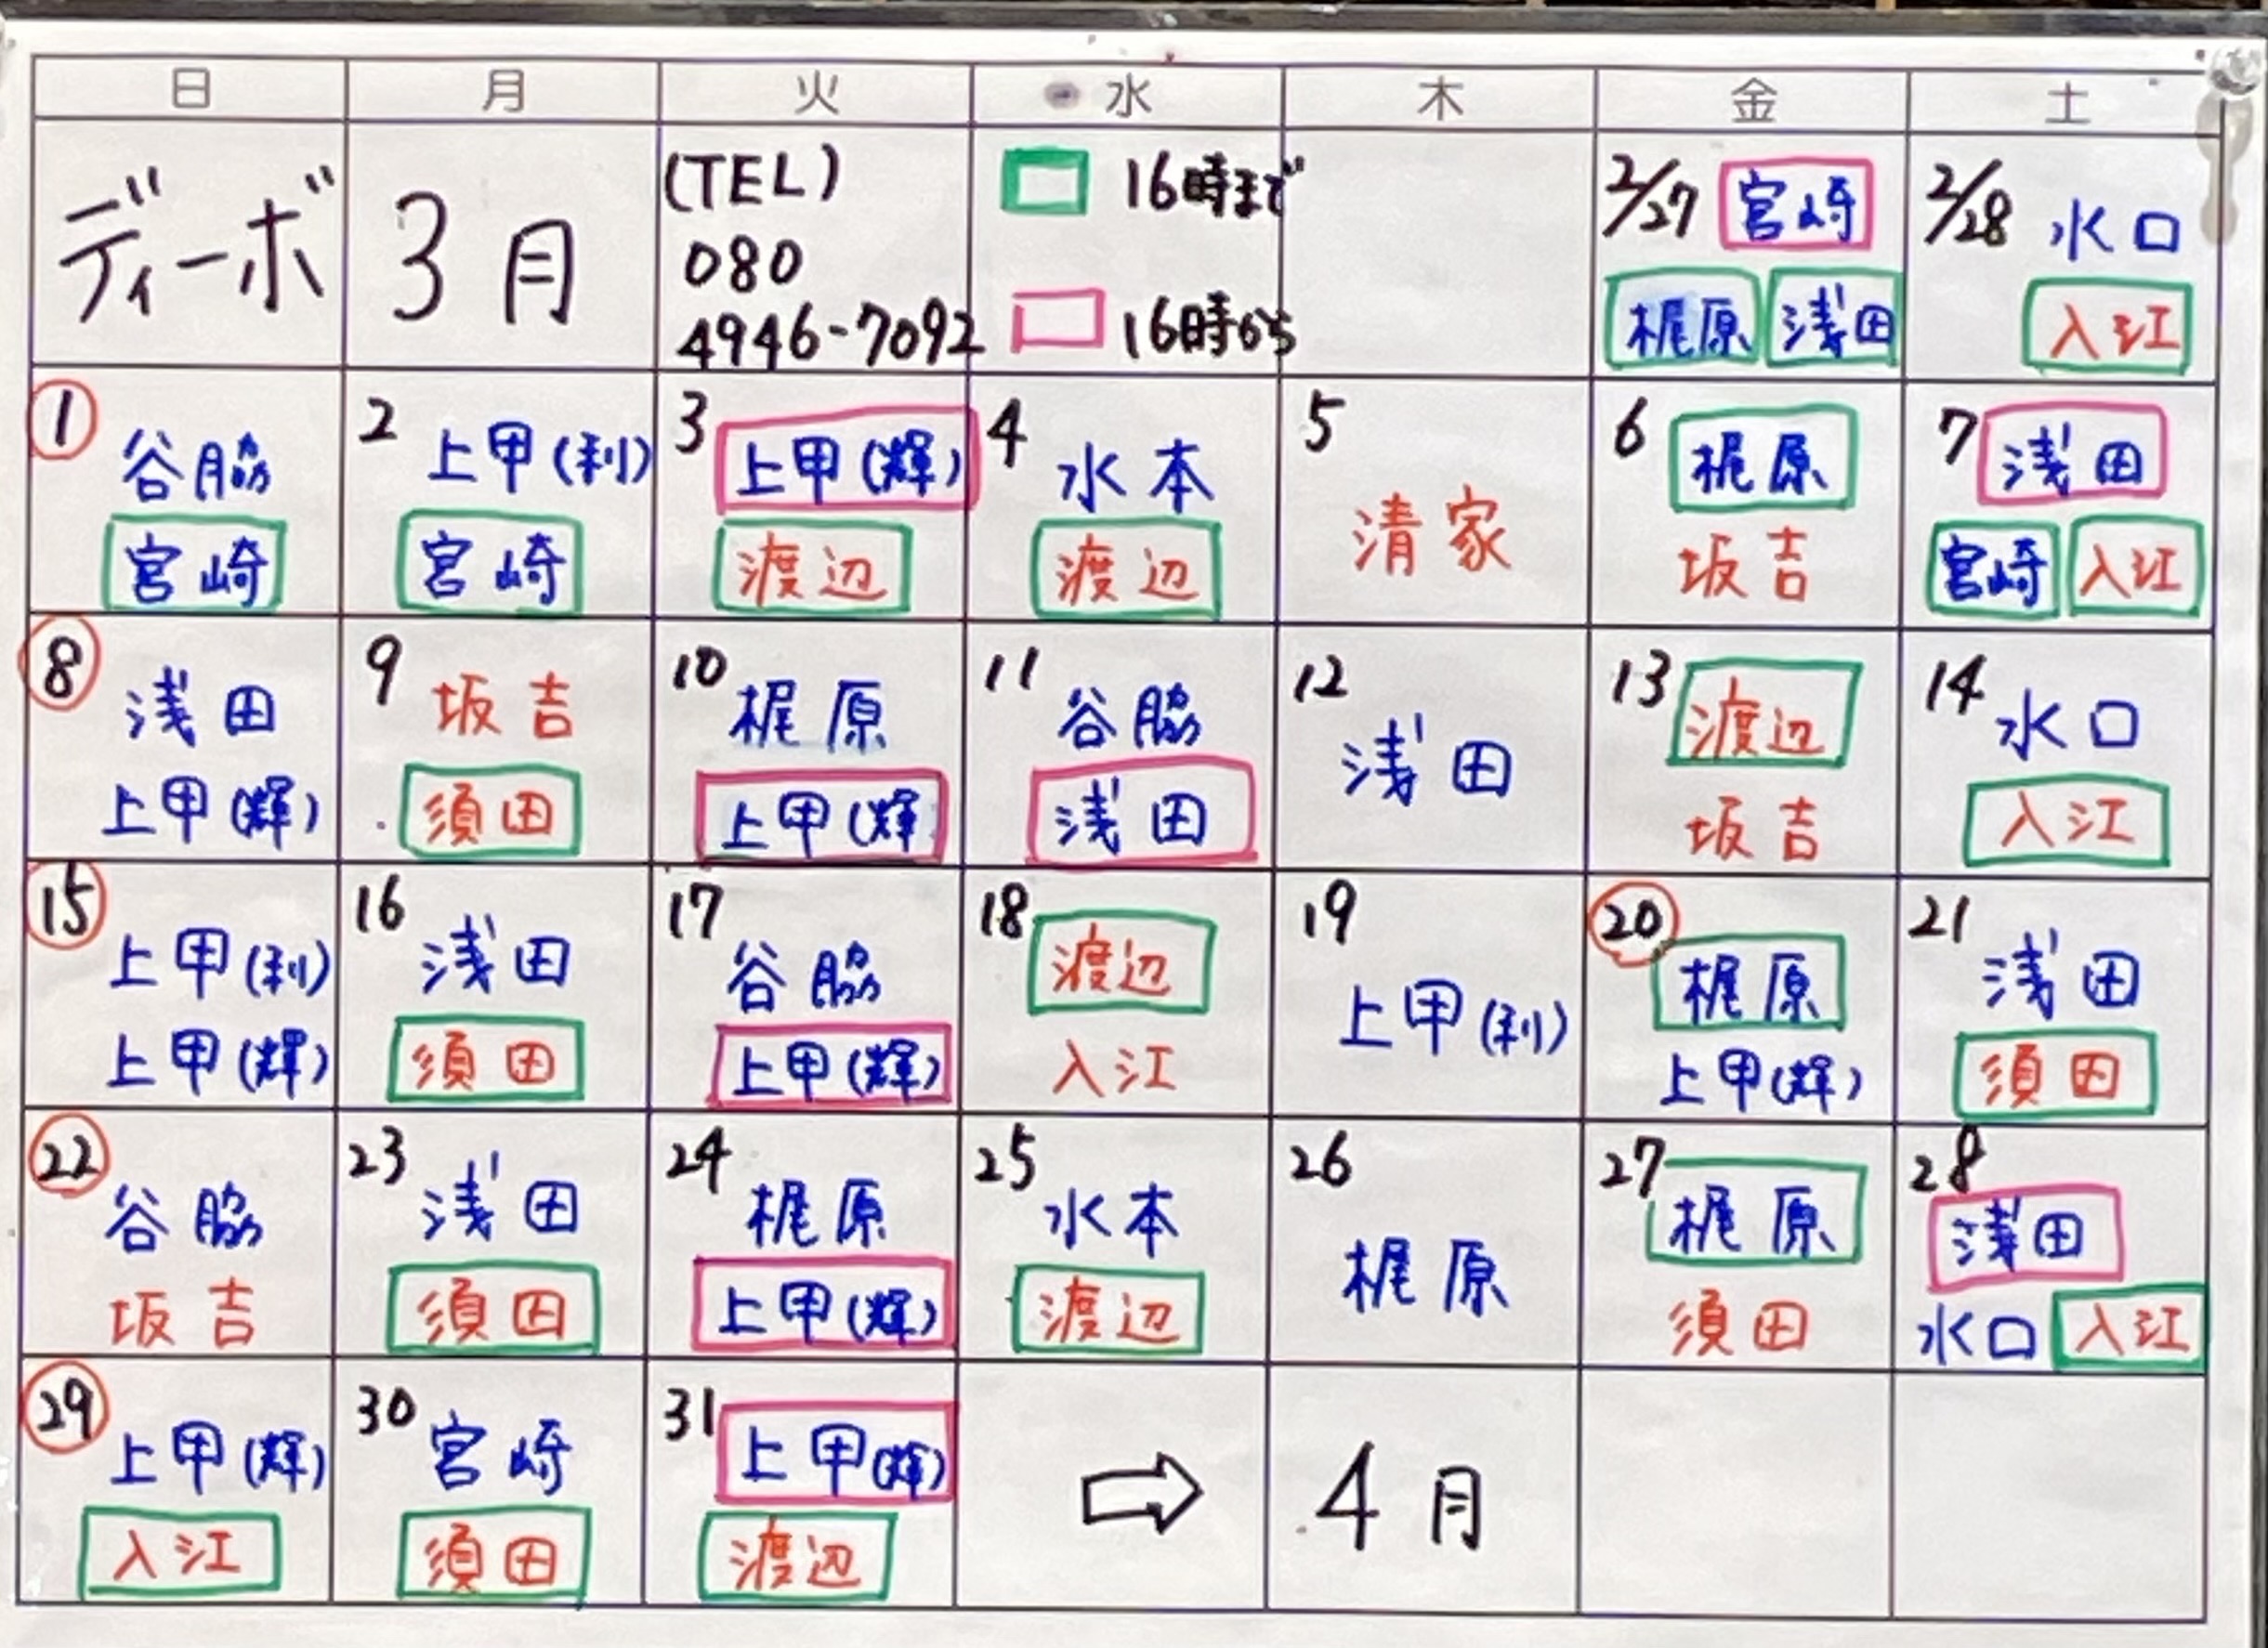 日 月 火 水 木 金 土
ディーボ 3月
(TEL)
080
4946-7092
16時まで
16時から
2/27 宮崎
梶原 浅田
2/28 水口
入江
1
谷脇
宮崎
2 上甲(利)
宮崎
3 上甲(輝)
渡辺
4 水本
渡辺
5
清家
6 梶原
坂吉
7 浅田
宮崎 入江
8 浅田
上甲(輝)
9 坂吉
須田
10 梶原
上甲(輝)
11 谷脇
浅田
12
浅田
13 渡辺
坂吉
14 水口
入江
15
上甲(利)
上甲(輝)
16 浅田
須田
17
谷脇
上甲(輝)
18 渡辺
入江
19
上甲(利)
20
梶原
上甲(輝)
21
浅田
須田
22
谷脇
坂吉
23 浅田
須田
24
梶原
上甲(輝)
25
水本
渡辺
26
梶原
27 梶原
須田
28
浅田
水口 入江
29
上甲(輝)
入江
30 宮崎
須田
31 上甲(輝)
渡辺
⇨ 4月